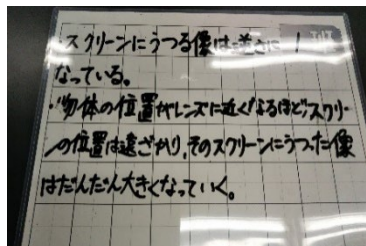 ・スクリーンにうつる像は逆さに 1班
なっている。
・物体の位置がレンズに近くなるほど、スクリーン
の位置は遠ざかり、そのスクリーンにうつった像
はだんだん大きくなっていく。